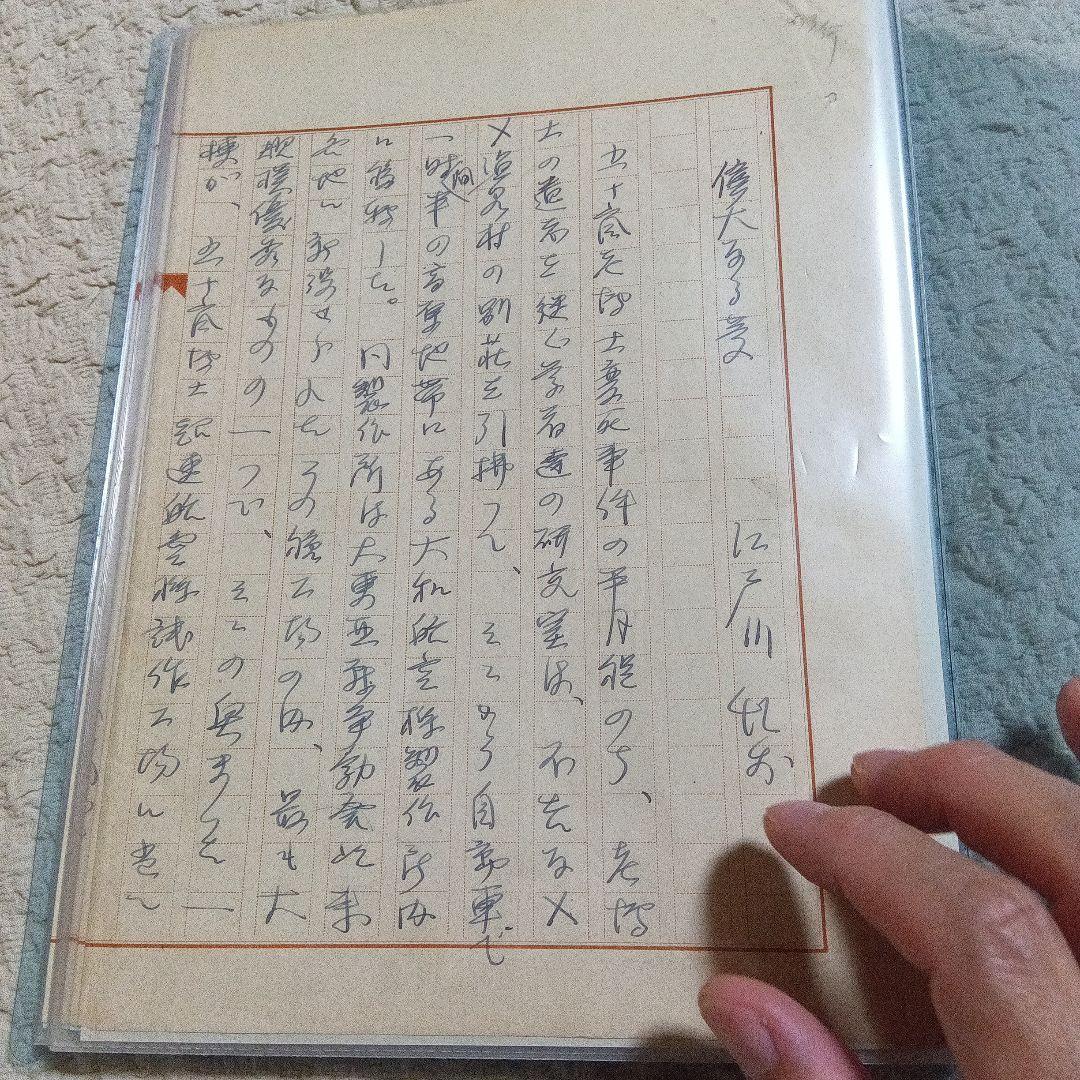 偉大なる夢
江戸川乱歩
五十嵐老博士変死事件の半月程のち、老博
士の遺志を継ぐ学者達の研究室は、不吉なメ
メ温泉村の別荘を引払つて、そこから自動車で
一時間半の高原地帯にある大和航空機製作所内
に移転した。同製作所は大東亜戦争勃発以来
各地に新設せられたその種工場の内、最も大
規模優秀なものの一つで、そこの奥まつた一
棟が、五十嵐博士超速航空機試作工場に